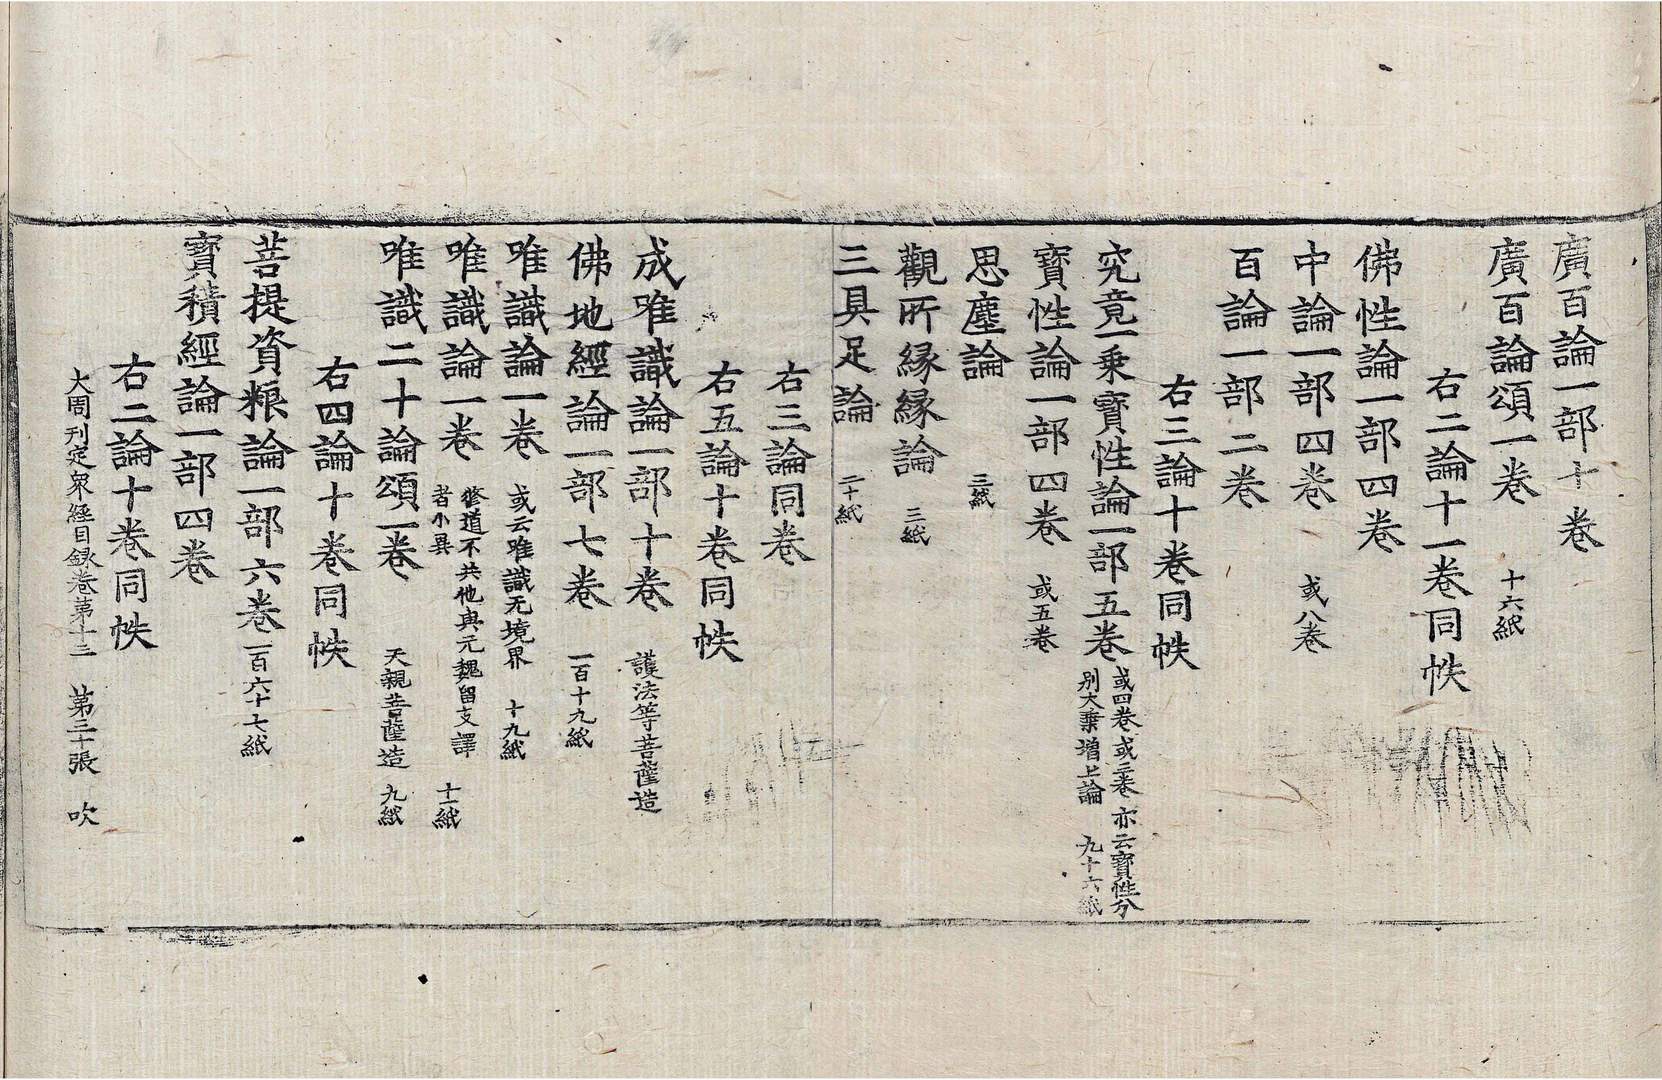 廣百論一部十卷
廣百論頌一卷 十六紙
右二論十一卷同帙
佛性論一部四卷
中論一部四卷 或八卷
百論一部二卷
右三論十卷同帙
究竟一乘寶性論一部五卷 或四卷或三卷亦云寶性分
別大乘增上論 九十六紙
寶性論一部四卷 或五卷
思塵論 三紙
觀所縁縁論 三紙
三具足論 二十紙
右三論同卷
右五論十卷同帙
成唯識論一部十卷 護法等菩薩造
佛地經論一部七卷 一百十九紙
唯識論一卷 或云唯識无境界 十九紙
唯識論一卷 修道不共他與元魏留支譯
者小異 十一紙
唯識二十論頌一卷 天親菩薩造 九紙
右四論十卷同帙
菩提資粮論一部六卷 一百六十七紙
寶積經論一部四卷
右二論十卷同帙
大周刊定衆經目録卷第十三 第三十張 吹